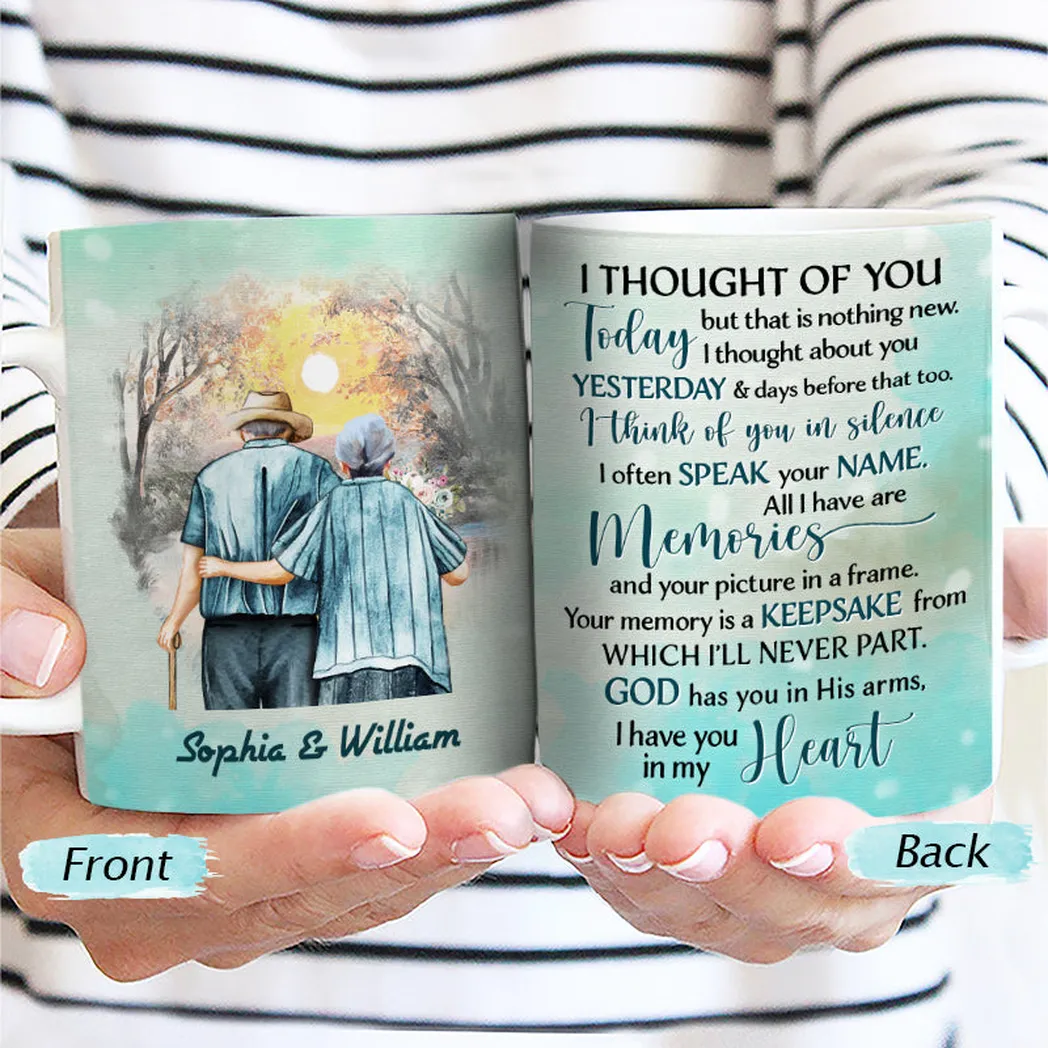 Sophia & William
Front
I THOUGHT OF YOU
Today but that is nothing new.
I thought about you
YESTERDAY & days before that too.
I think of you in silence
I often SPEAK your NAME.
All I have are
Memories
and your picture in a frame.
Your memory is a KEEPSAKE from
WHICH I'LL NEVER PART.
GOD has you in His arms,
I have you
in my Heart
Back